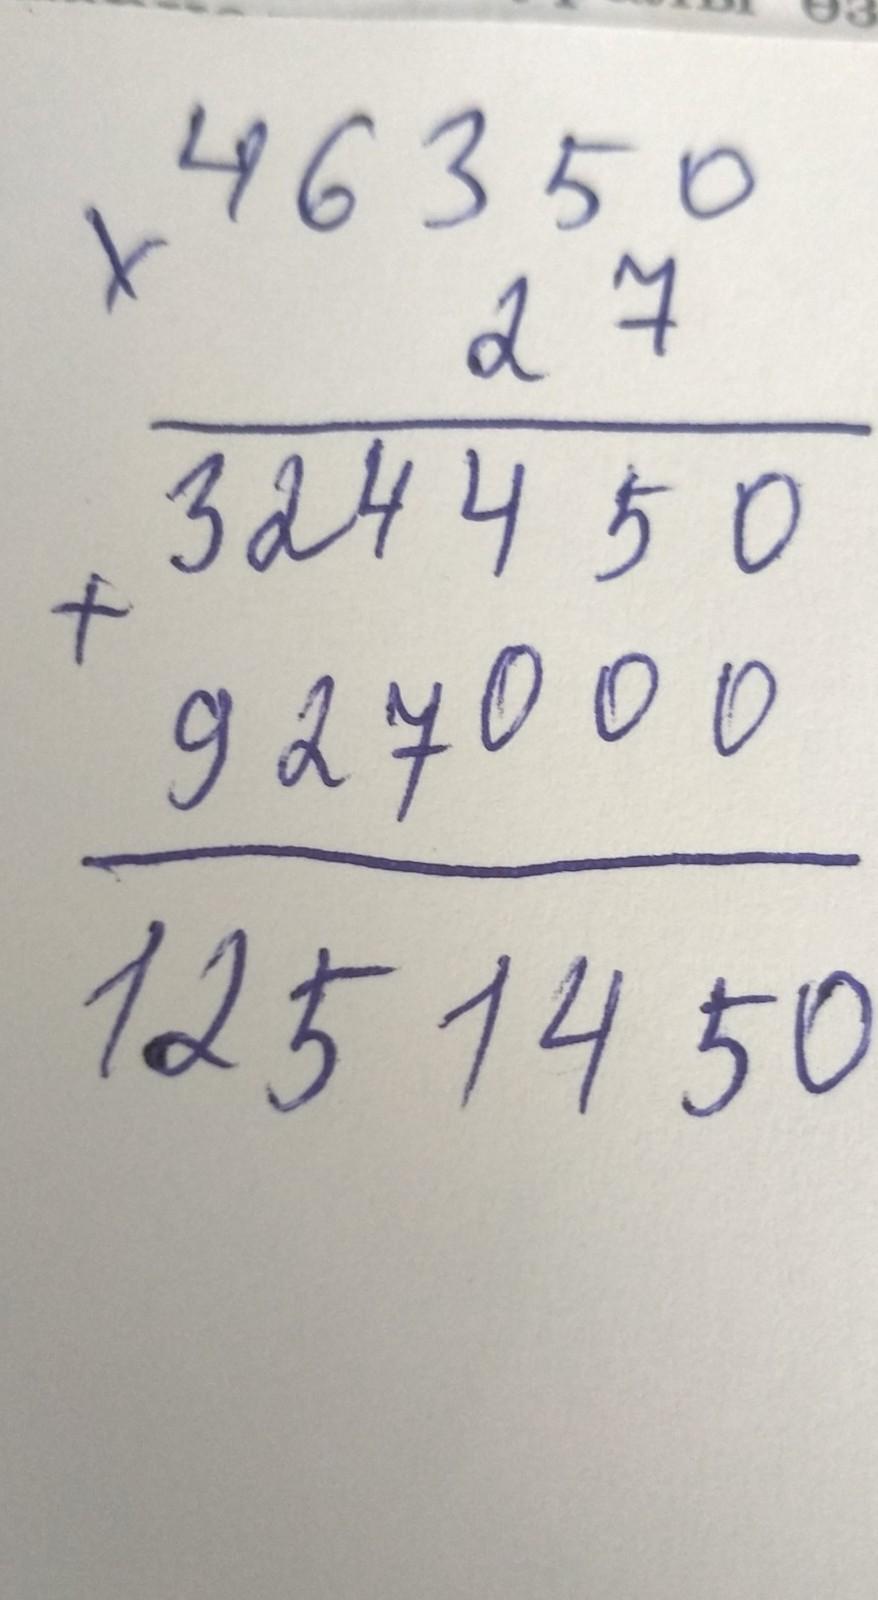 46350
× 27
324450
+
927000
1251450